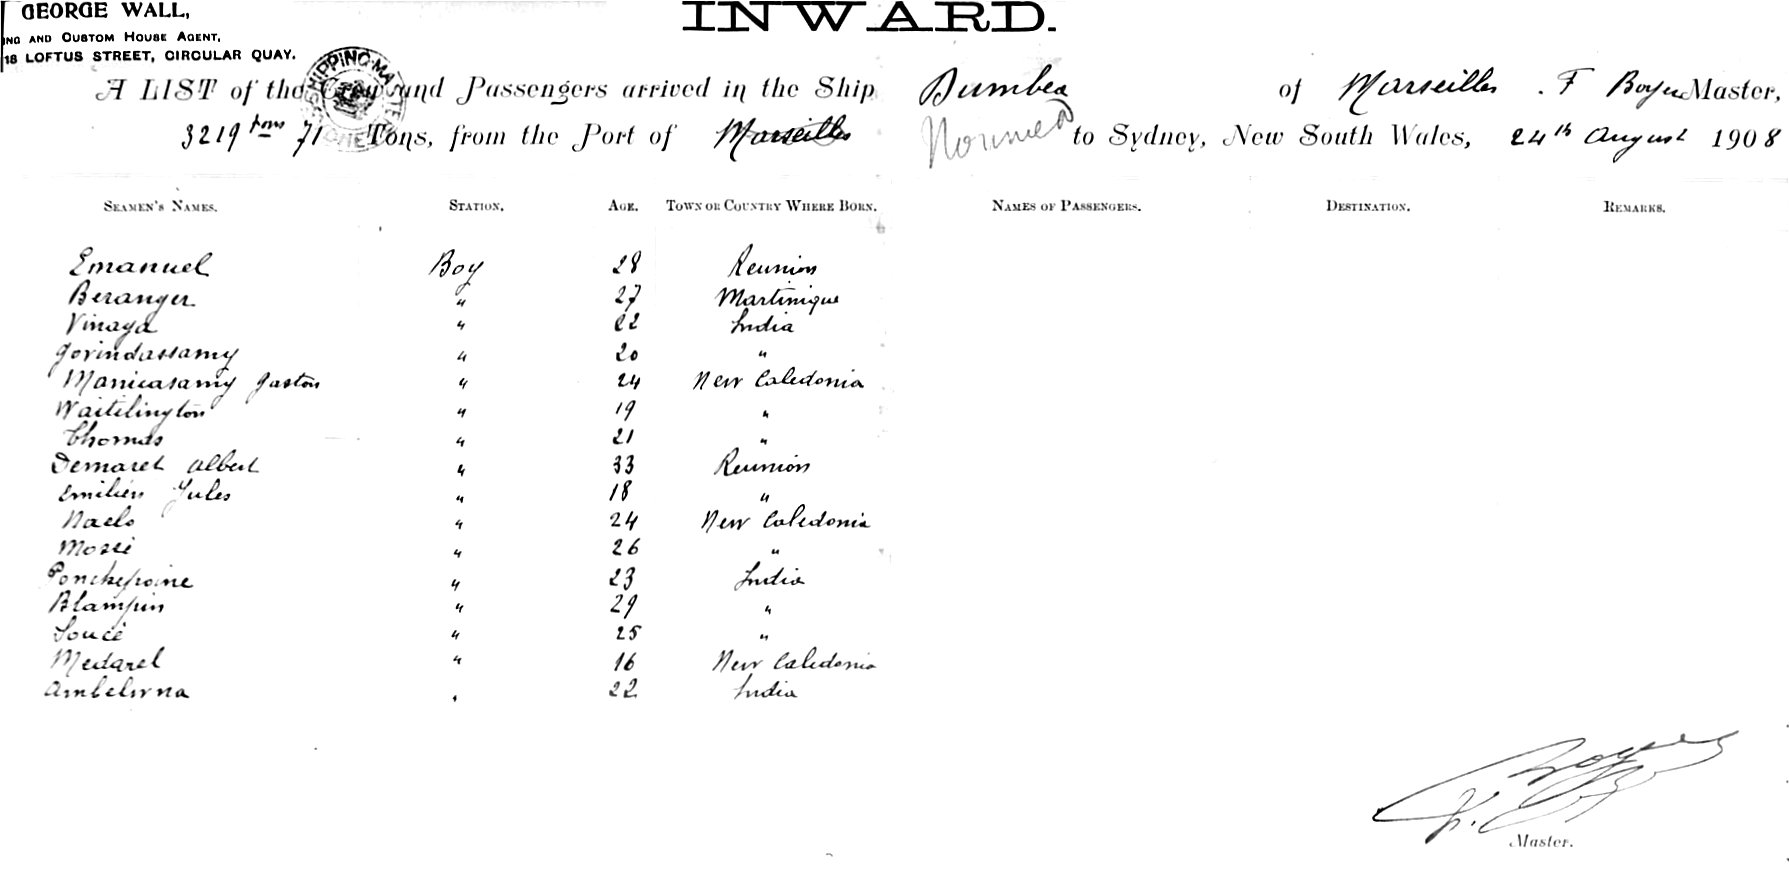 GEORGE WALL,
ING AND CUSTOM HOUSE AGENT,
18 LOFTUS STREET, CIRCULAR QUAY.
INWARD.
SHIPPING MASTER
A LIST of the Crew and Passengers arrived in the Ship Dumbea of Marseilles . F Boyer Master,
3219 tons 71 Tons, from the Port of Marseilles Noumea to Sydney, New South Wales, 24th August 1908
SEAMEN'S NAMES. STATION. AGE. TOWN OR COUNTRY WHERE BORN. NAMES OF PASSENGERS. DESTINATION. REMARKS.
Emanuel Boy 28 Reunion
Beranger " 27 Martinique
Vinaya " 22 India
Govindassamy " 20 "
Manicasamy Gaston " 24 New Caledonia
Waitilington " 19 "
Thomas " 21 "
Demaret Albert " 33 Reunion
Emilien Jules " 18 "
Naelo " 24 New Caledonia
" 26 "
" 23 India
Blampin " 29 "
Soucé " 25 "
Medarel " 16 New Caledonia
" 22 India
Master.